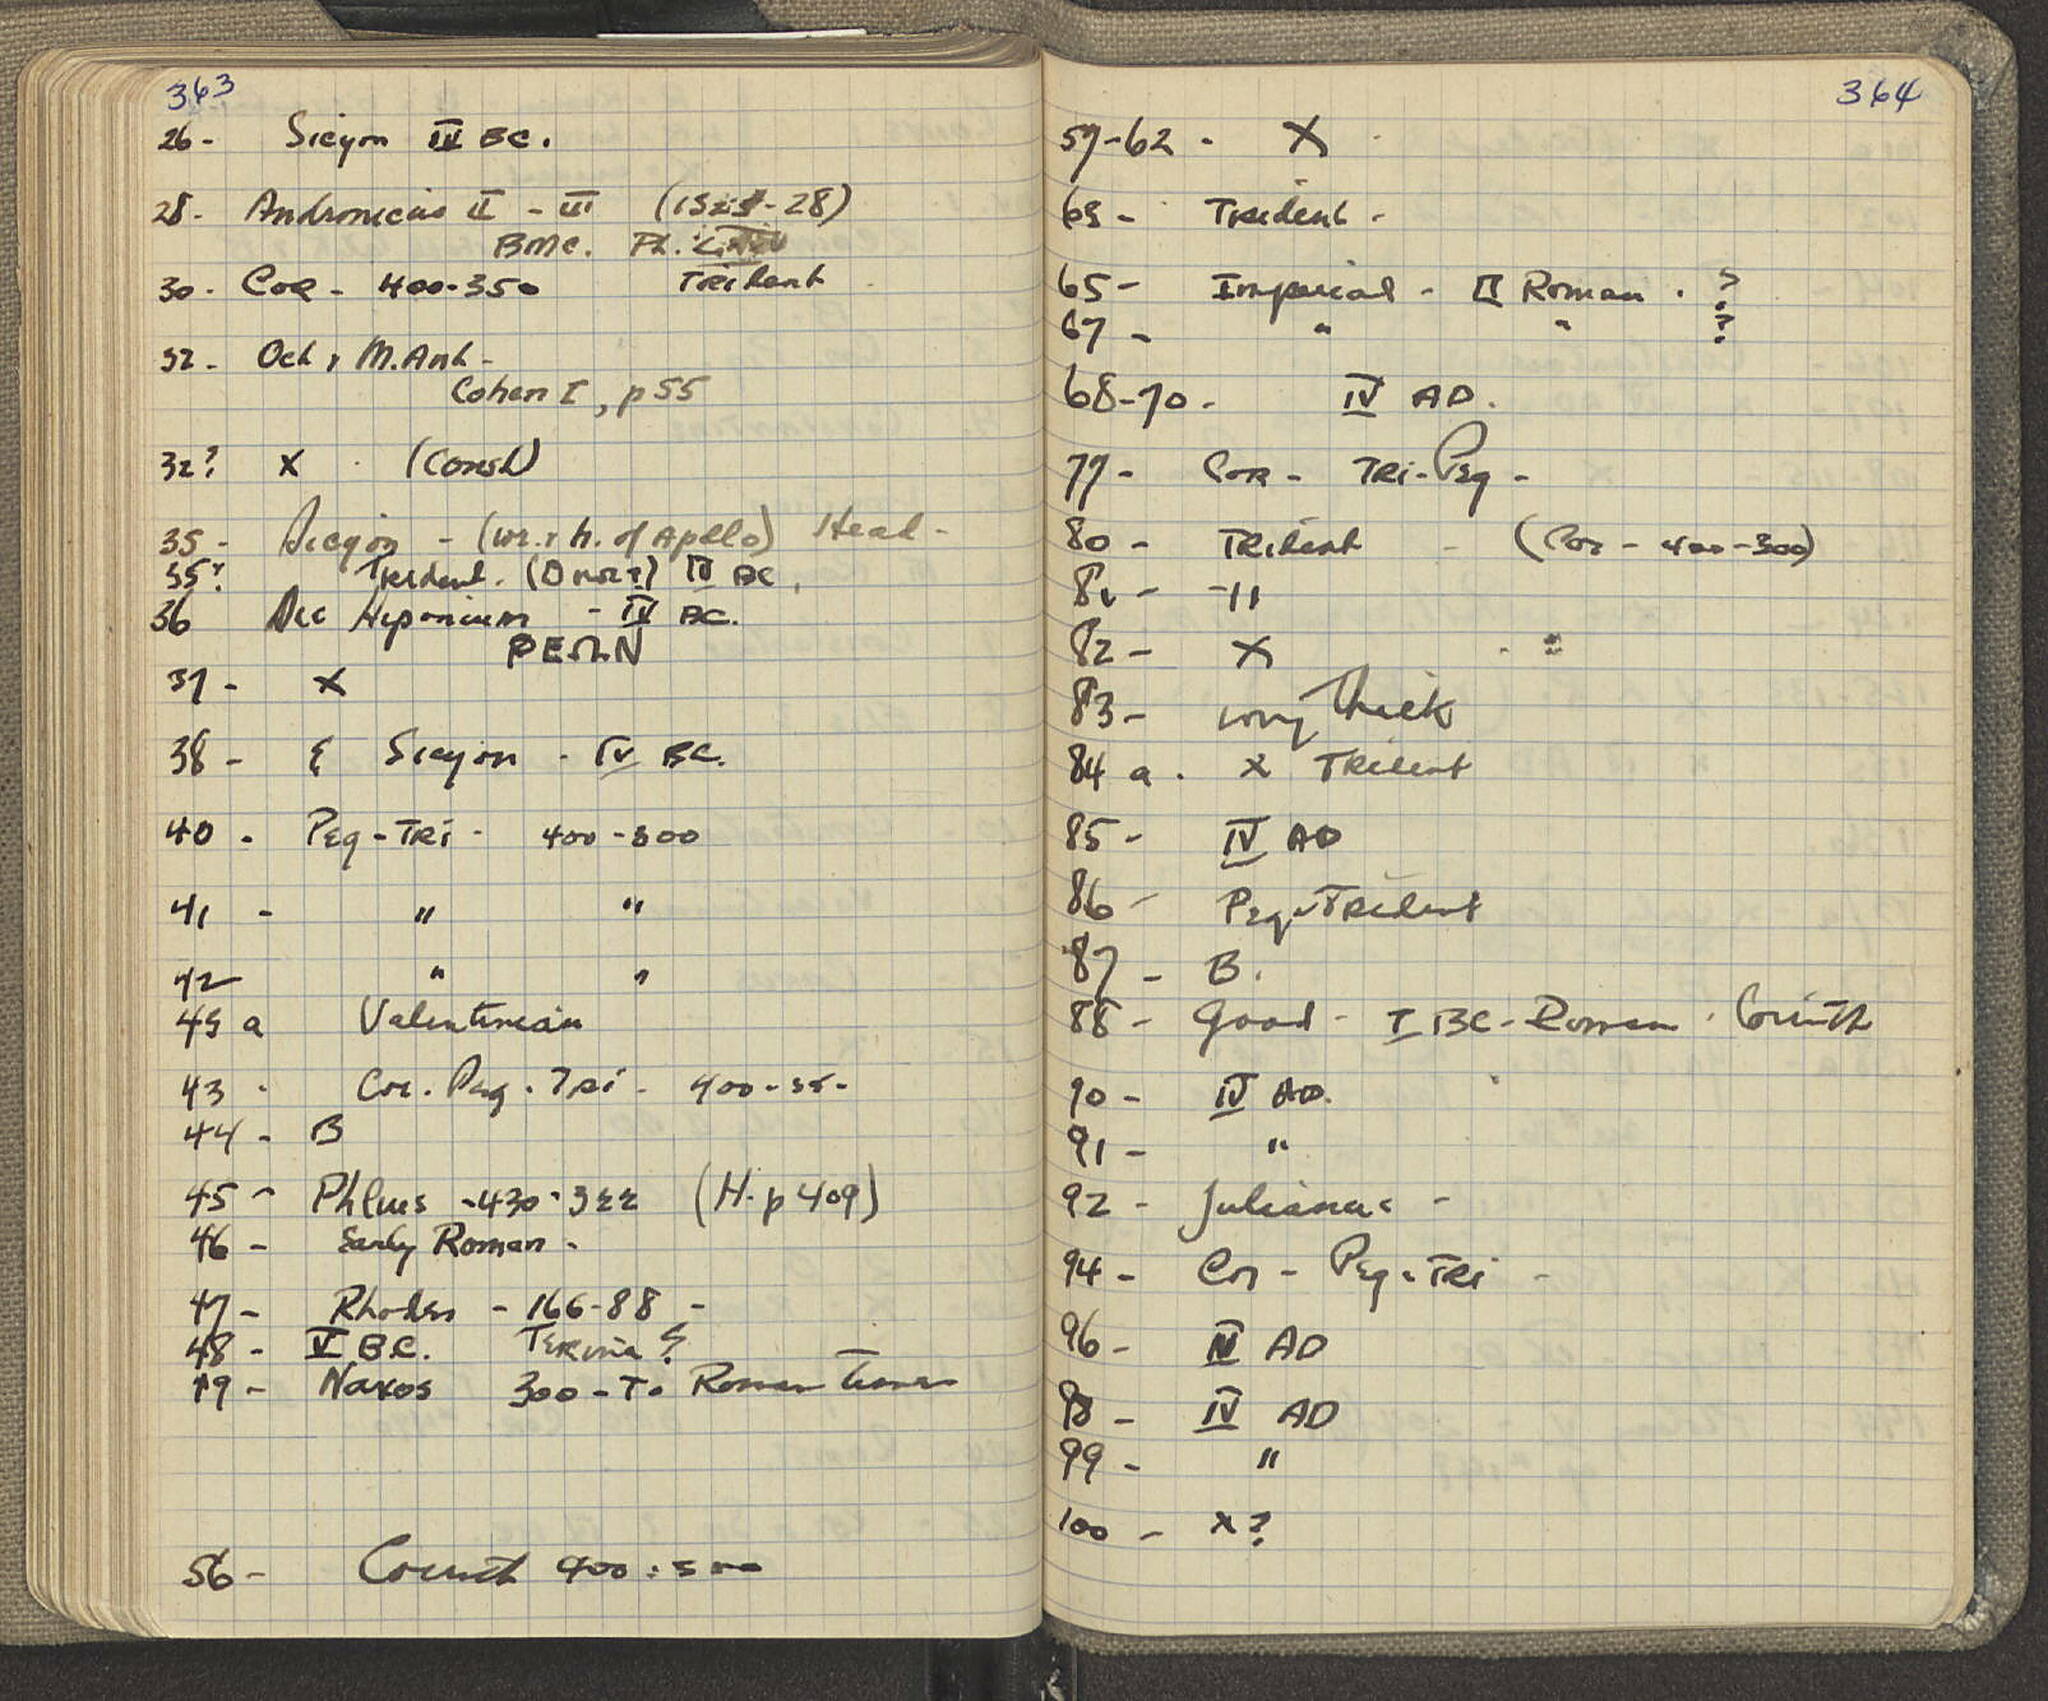 363
26 - Sicyon IV BC.
28 - Andronicus II - III (1325-28)
BMC. Pl.
30 - Cor - 400-350 Trident
32 - Oct & M. Ant -
Cohen I, p 55
32? X . (Const)
35 - Sicyon - (wr. & h. of Apollo) Head -
35? Trident. IV BC.
36 Hiponium - IV BC.
ΡΕΩΝ
37 - X
38 - Sicyon - IV BC.
40 - Peg - Tri - 400-300
41 - " "
42 " "
43 a Valentinian
43 - Cor. Peg. Tri - 400-
44 - B
45 - Phlius - 430-322 (H. p 409)
46 - Early Roman -
47 - Rhodes - 166-88 -
48 - V B.C. Terina ?
49 - Naxos 300 - To Roman times
56 - Corinth 400-300
364
59-62 - X
63 - Trident -
65 - Imperial - II Roman . ?
67 - " " ?
68-70 - IV AD.
77 - Cor - Tri-Peg -
80 - Trident - (Cor - 400-300)
81 - "
82 - X
83 - very thick
84 a . X Trident
85 - IV AD
86 - Peg-Trident
87 - B.
88 - Good - I BC - Roman . Corinth
90 - IV AD.
91 - "
92 - Julianus -
94 - Cor - Peg-Tri -
96 - IV AD
98 - IV AD
99 - "
100 - X?